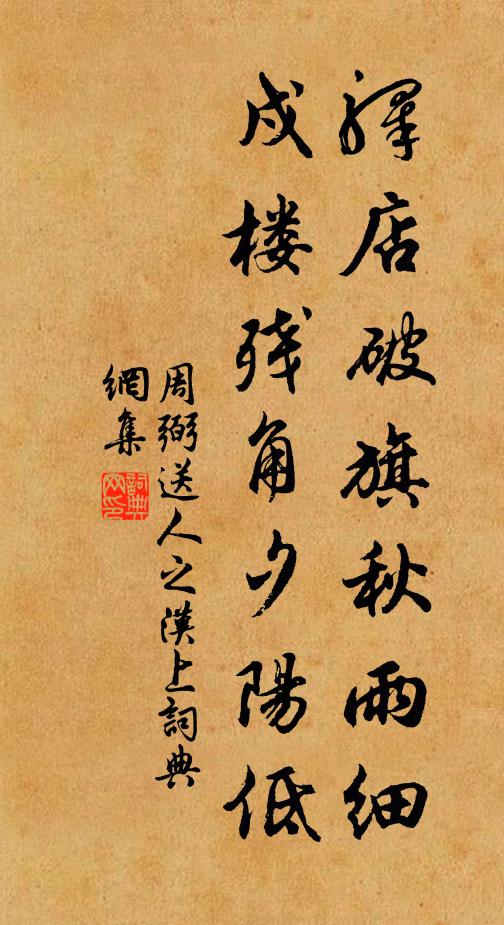 驛店破旗秋雨細
戍楼残角夕陽低
周弼送人之漢上詞典
網集
詞典
网印